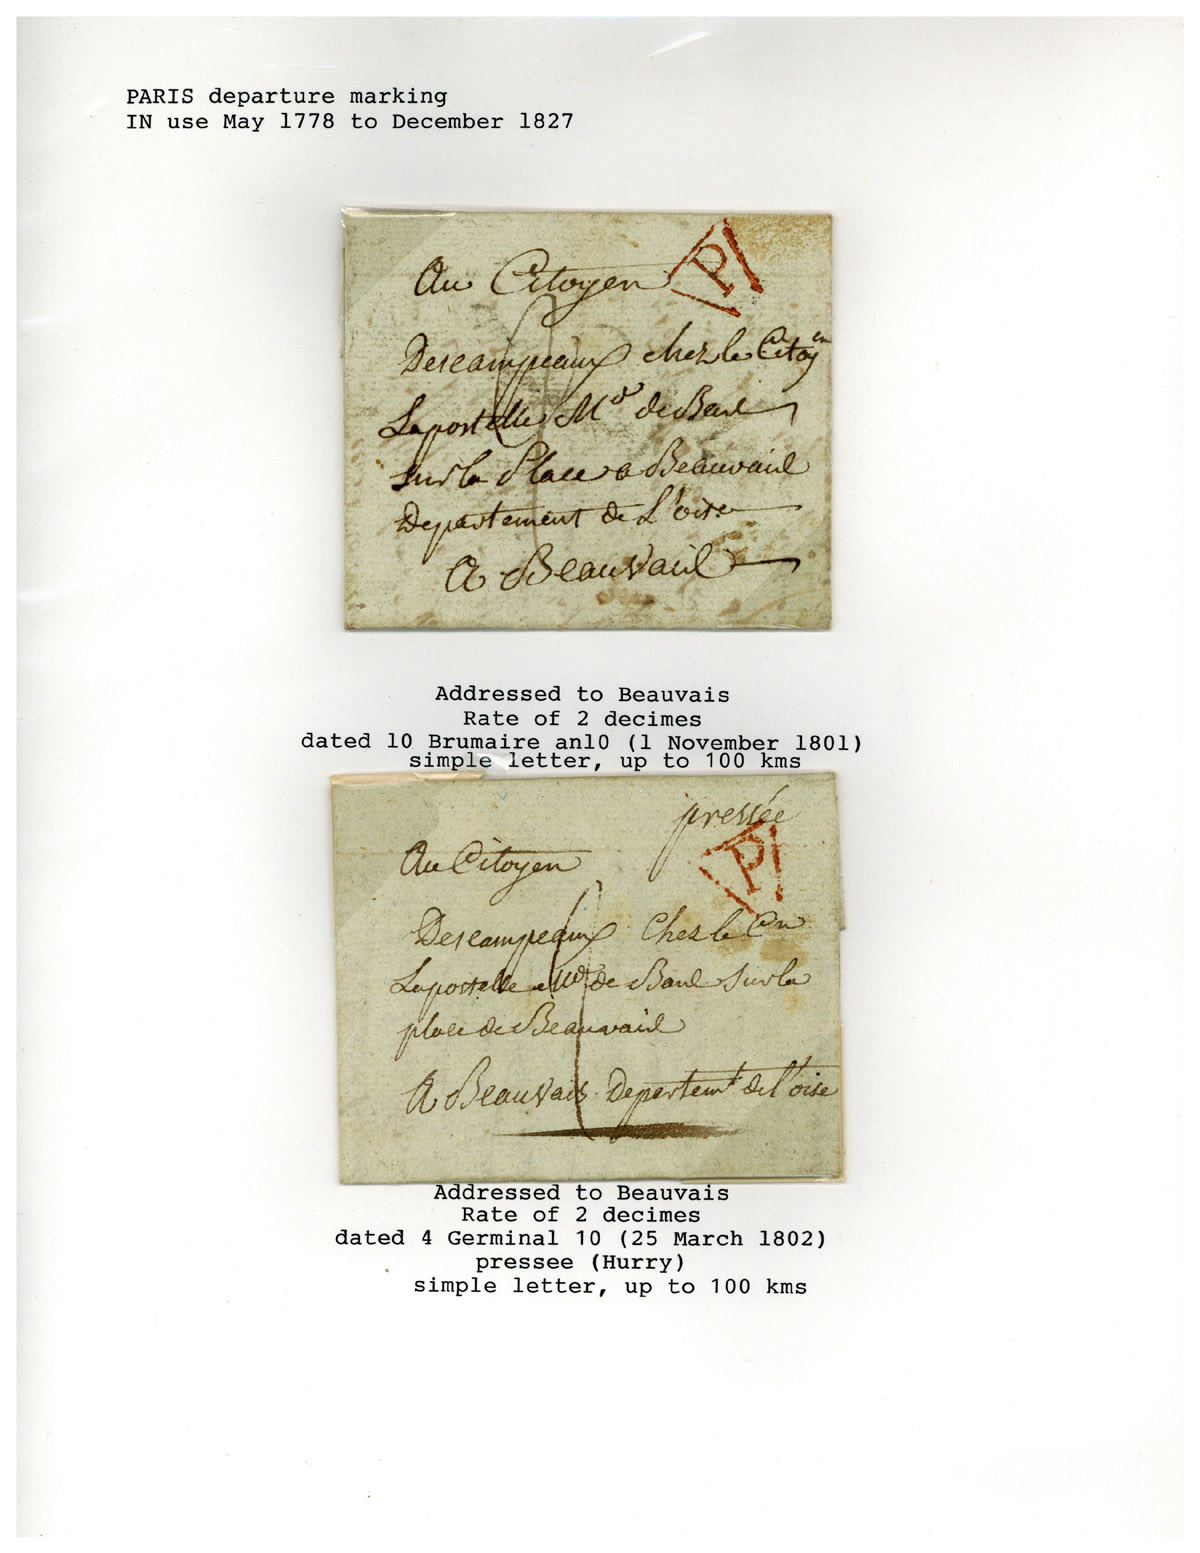 PARIS departure marking
IN use May 1778 to December 1827
P
Au Citoyen
Descampeaux chez le Citoyen
Lapostelle Md de Baul
sur la Place a Beauvaiu
Departement de L'oise
A Beauvaiu
Addressed to Beauvais
Rate of 2 decimes
dated 10 Brumaire an10 (1 November 1801)
simple letter, up to 100 kms
pressée
P
Au Citoyen
Descampeaux Chez le Cen
Lapostelle Md de Baul sur la
place de Beauvaiu
A Beauvais Departemt de l'oise
Addressed to Beauvais
Rate of 2 decimes
dated 4 Germinal 10 (25 March 1802)
pressee (Hurry)
simple letter, up to 100 kms